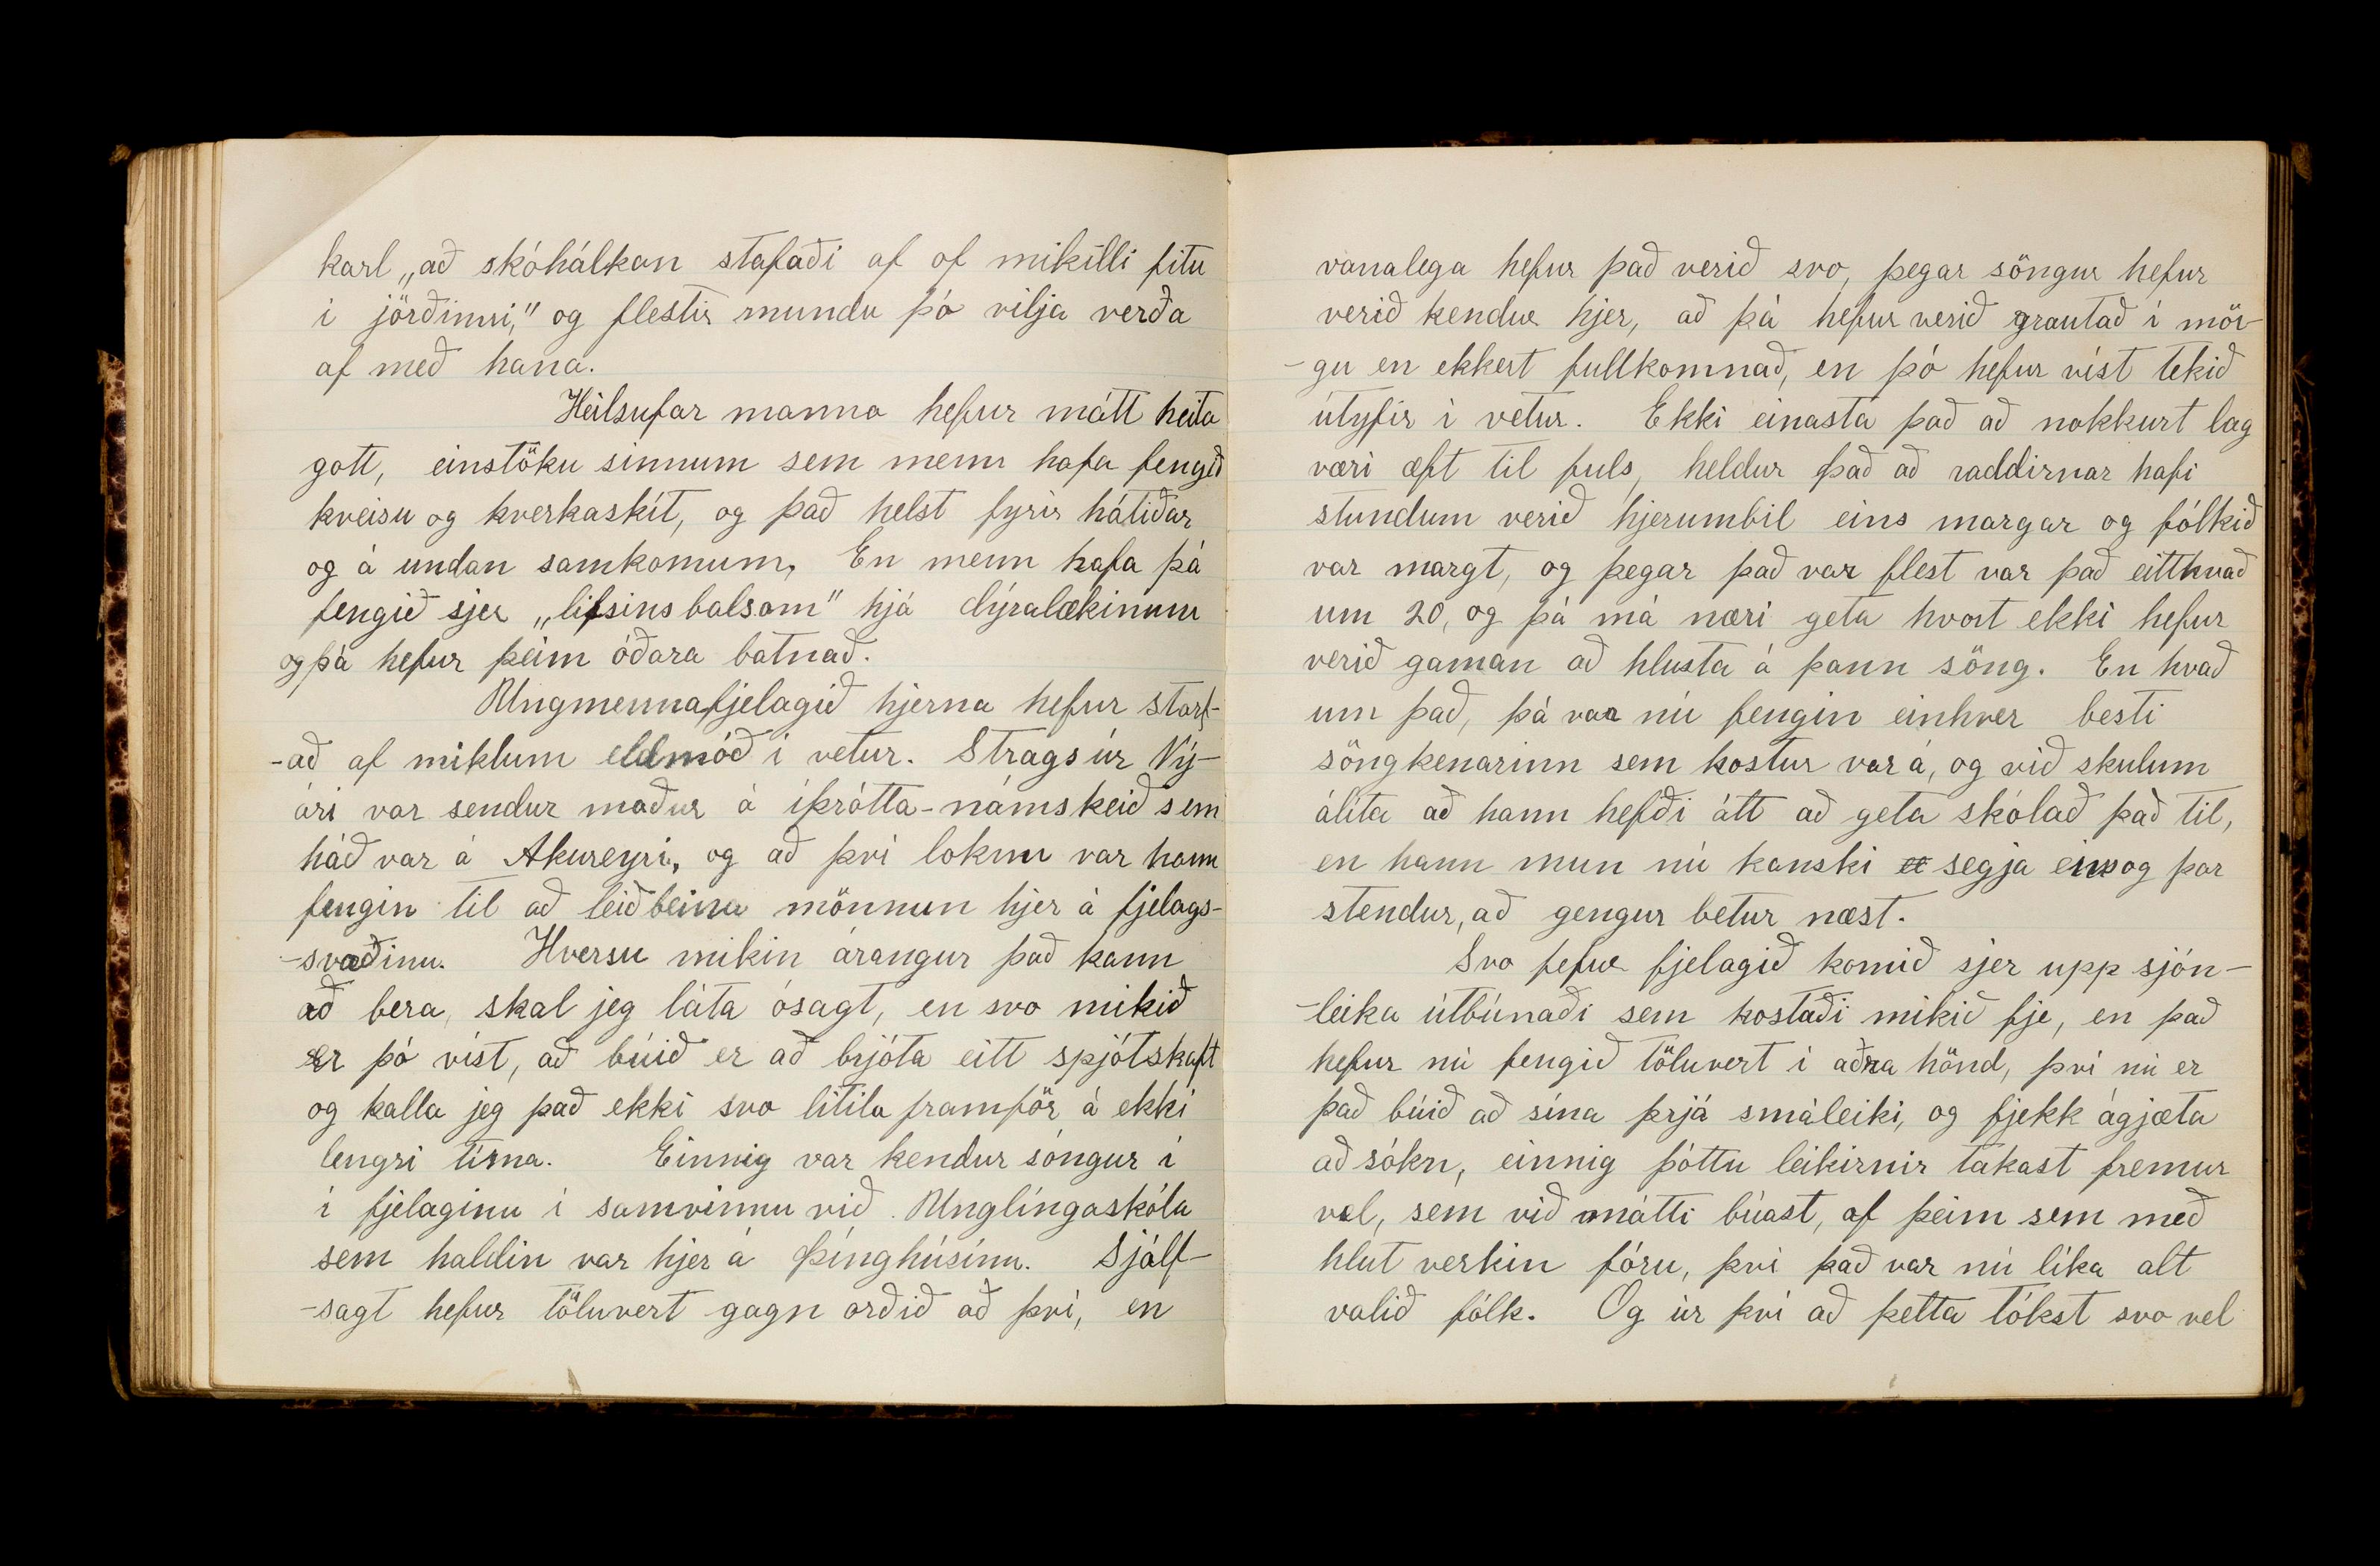 karl „að skóhálkan stafaði af of mikilli fitu
í jörðinni," og flestir mundu þó vilja verða
af með hana.
Heilsufar manna hefur mátt heita
gott, einstöku sinnum sem menn hafa fengið
kveisu og kverkaskít, og það helst fyrir hátiðar
og á undan samkomum, En menn hafa þá
fengið sjer „lifsins balsam" hjá dýralækinum
og þá hefur þeim óðara batnað.
Ungmennafjelagið hjerna hefur starf-
-að af miklum eldmóð í vetur. Strags úr Ný-
ári var sendur maður á íþrótta-námskeið sem
háð var á Akureyri, og að því loknu var hann
fengin til að leiðbeina mönnum hjer á fjelags-
-svæðinu. Hversu mikin árangur það kann
að bera, skal jeg láta ósagt, en svo mikið
er þó víst, að búið er að brjóta eitt spjótskaft
og kalla jeg það ekki svo litila framför á ekki
lengri tíma. Einnig var kendur söngur í
í fjelaginu í samvinnu við Unglingaskóla
sem haldin var hjer á Þinghúsinu. Sjálf-
-sagt hefur töluvert gagn orðið að því, en
vanalega hefur það verið svo, þegar söngur hefur
verið kendur hjer, að þá hefur verið grautað í mör-
-gu en ekkert fullkomnað, en þó hefur víst tekið
útyfir í vetur. Ekki einasta það að nokkurt lag
væri æft til fuls, heldur það að raddirnar hafi
stundum verið hjerumbil eins margar og fólkið
var margt, og þegar það var flest var það eitthvað
um 20, og þá má næri geta hvort ekki hefur
verið gaman að hlusta á þann söng. En hvað
um það, þá var nú fengin einhver besti
söngkenarinn sem kostur var á, og við skulum
álíta að hann hefði átt að geta skólað það til,
en hann mun nú kanski segja eins og þar
stendur, að gengur betur næst.
Svo fefur fjelagið komið sjer upp sjón-
-leika útbúnaði sem kostaði mikið fje, en það
hefur nú fengið töluvert í aðra hönd, því nú er
það búið að sína þrjá smáleiki, og fjekk ágjæta
aðsókn, einnig þóttu leikirnir takast fremur
vel, sem við mátti búast, af þeim sem með
hlut verkin fóru, því það var nú líka alt
valið fólk. Og úr því að þetta tókst svo vel